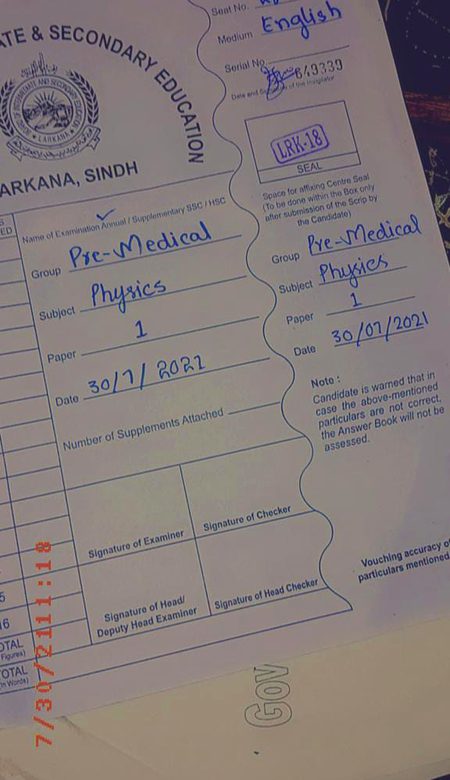 ATE & SECONDARY EDUCATION
LARKANA
ARKANA, SINDH
Name of Examination Annual / Supplementary SSC / HSC
Group Pre-Medical
Subject Physics
Paper 1
Date 30/7/2021
Number of Supplements Attached
Signature of Examiner
Signature of Checker
Signature of Head/
Deputy Head Examiner
Signature of Head Checker
ED
5
16
OTAL
Figures)
OTAL
(in Words)
Seat No.
Medium English
Serial No. 649339
Date and of the Invigilator
LRK-18
SEAL
Space for affixing Centre Seal
(To be done within the Box only
after submission of the Scrip by
the Candidate)
Group Pre-Medical
Subject Physics
Paper 1
Date 30/07/2021
Note :
Candidate is warned that in
case the above-mentioned
particulars are not correct,
the Answer Book will not be
assessed.
Vouching accuracy of
particulars mentioned
7/30/21 11:18
Gov